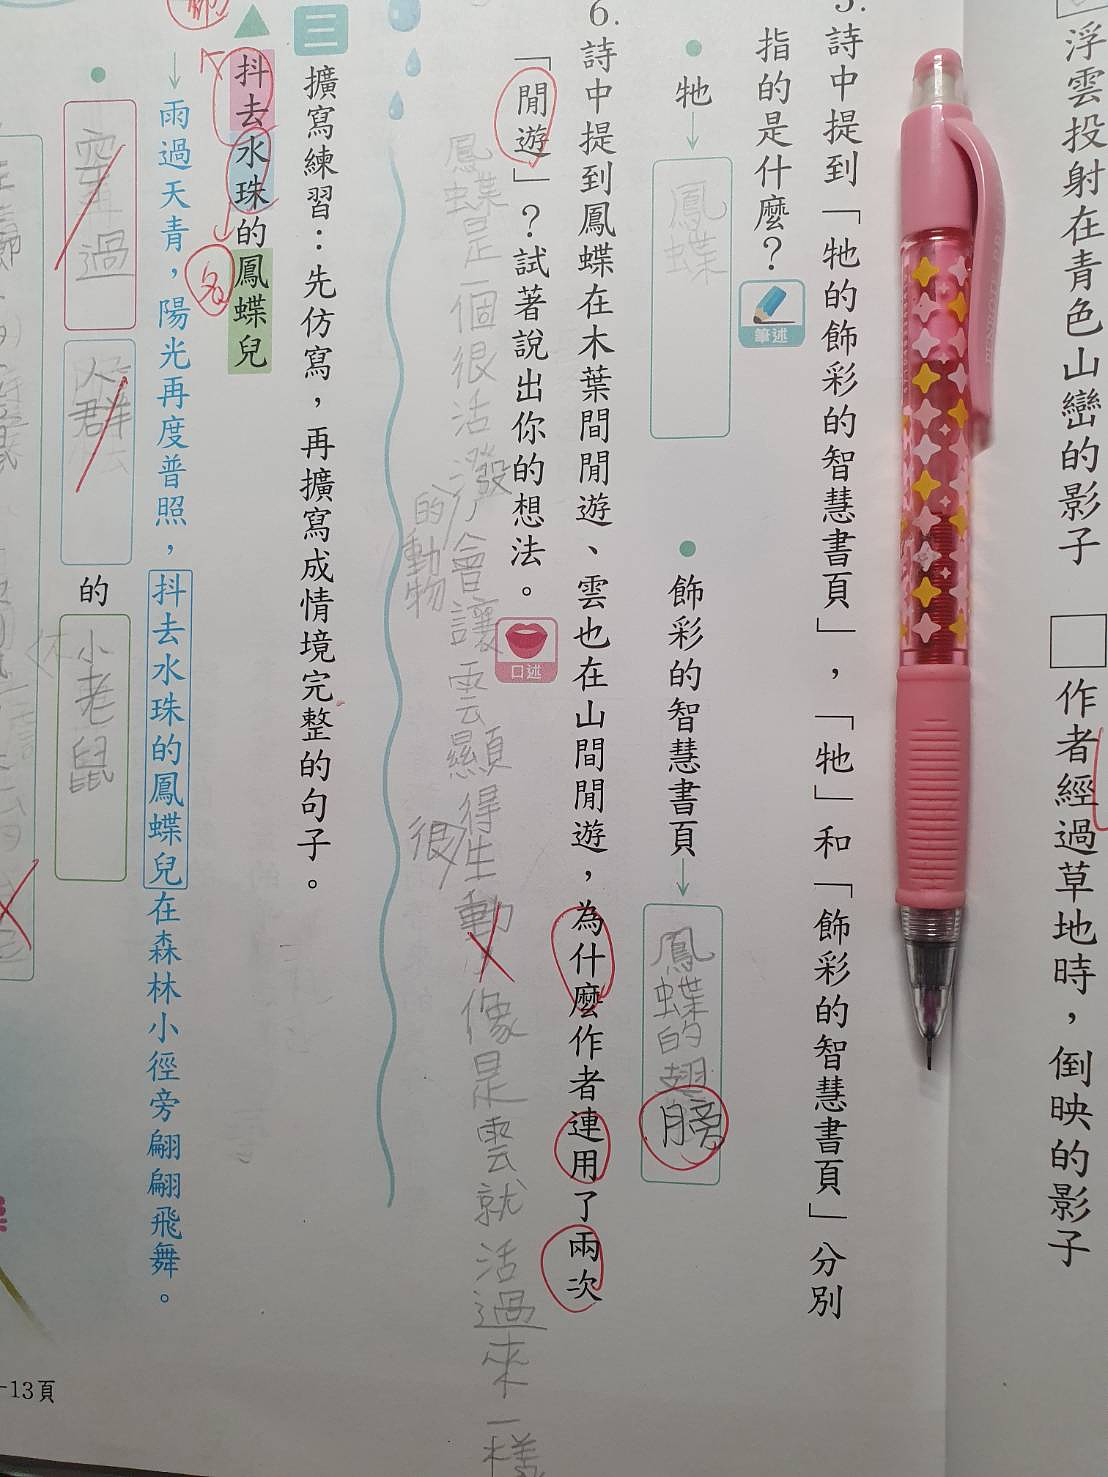 浮雲投射在青色山巒的影子
作者經過草地時，倒映的影子
5. 詩中提到「牠的飾彩的智慧書頁」，「牠」和「飾彩的智慧書頁」分別
指的是什麼？
筆述
牠→
鳳蝶
飾彩的智慧書頁→
鳳蝶的翅膀
6. 詩中提到鳳蝶在木葉間閒遊、雲也在山間閒遊，為什麼作者連用了兩次
「閒遊」？試著說出你的想法。
口述
鳳蝶是一個很活潑會讓雲顯得生動像是雲就活過來一樣
的動物
很
三 擴寫練習：先仿寫，再擴寫成情境完整的句子。
抖去水珠的鳳蝶兒
名
→雨過天青，陽光再度普照，抖去水珠的鳳蝶兒在森林小徑旁翩翩飛舞。
過
人群
的
小老鼠
-13頁